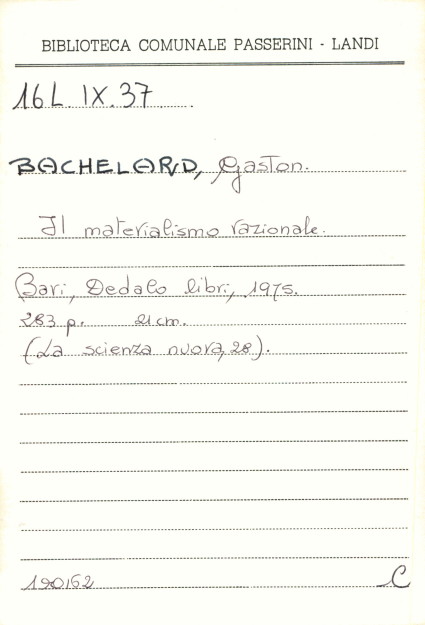 BIBLIOTECA COMUNALE PASSERINI - LANDI
16L. IX. 37
BACHELARD, Gaston.
Il materialismo razionale.
Bari, Dedalo libri, 1975.
283 p. 21 cm.
(La scienza nuova, 28).
190162 C